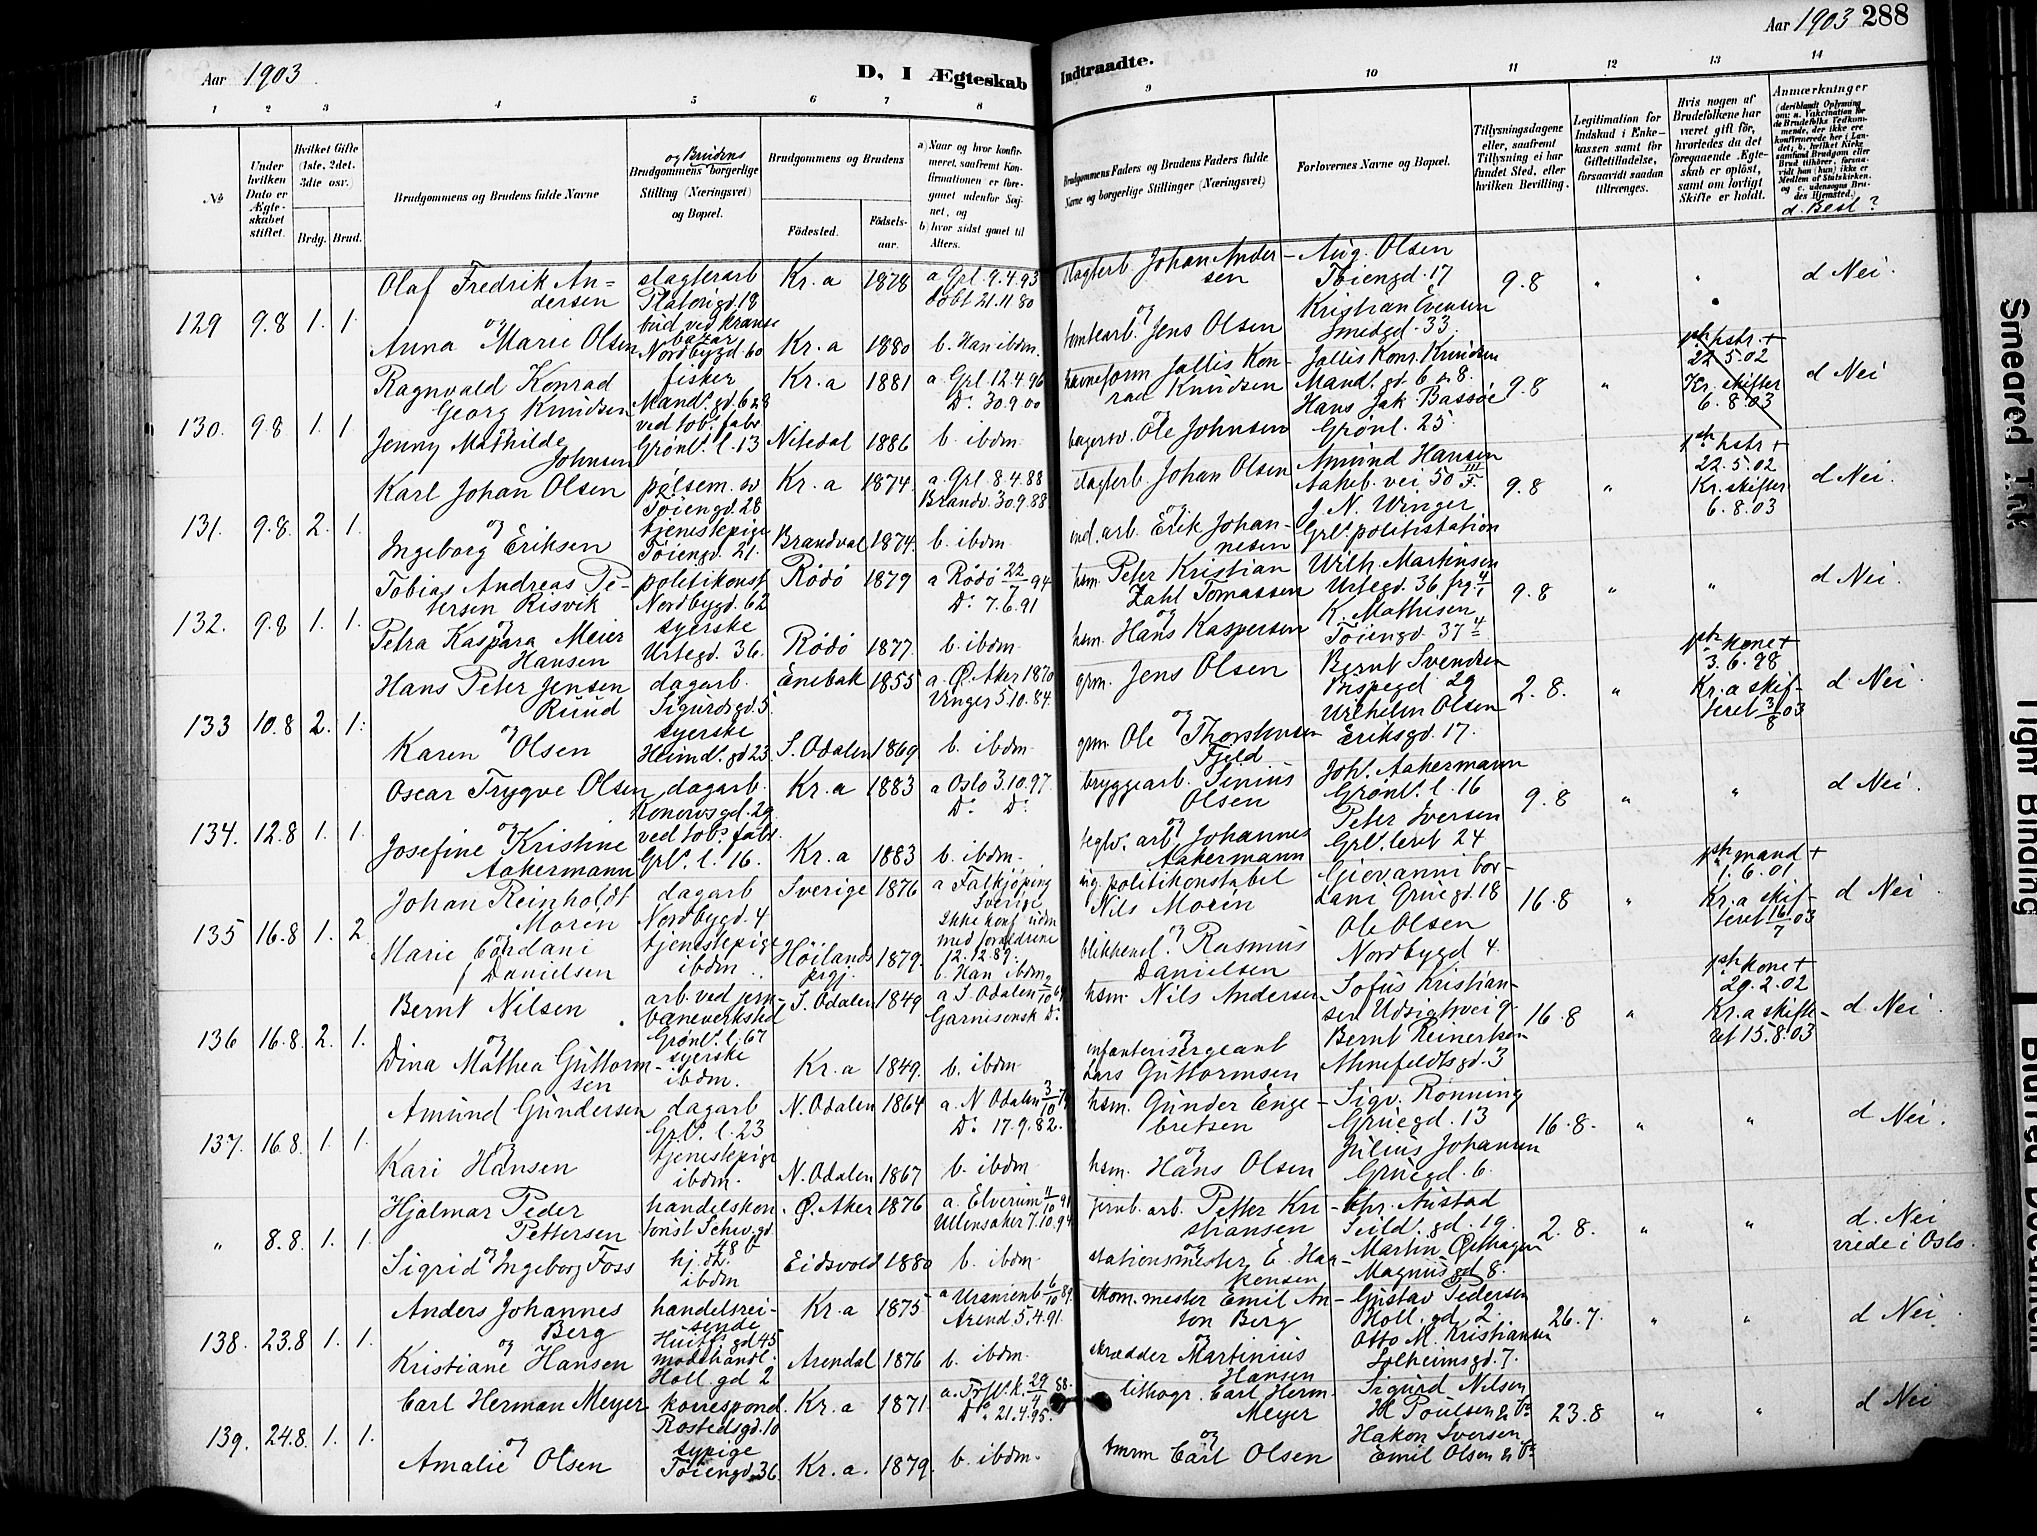 Aar 1903
D, I Ægteskab Indtraadte.
Aar 1903 288
1 2 3 4 5 6 7 8 9 10 11 12 13 14
No.
Under hvilken Dato er Ægteskabet stiftet.
Hvilket Gifte (1ste, 2det, 3die osv.)
Brdg. Brud.
Brudgommens og Brudens fulde Navne
Brudgommens og Brudens borgerlige Stilling (Næringsvei) og Bopæl.
Brudgommens og Brudens
Födested. Födsels-aar.
a) Naar og hvor konfirmeret, saafremt Konfirmationen er foregaaet udenfor Sognet, og
b) hvor sidst gaaet til Alters.
Brudgommens Faders og Brudens Faders fulde Navne og borgerlige Stillinger (Næringsvei)
Forlovernes Navne og Bopæl.
Tillysningsdagene eller, saafremt Tillysning ei har fundet Sted, efter hvilken Bevilling.
Legitimation for Indskud i Enkekassen samt for Giftetilladelse, forsaavidt saadan tiltrænges.
Hvis nogen af Brudefolkene har været gift för, hvorledes da det foregaaende Ægteskab er oplöst, samt om lovligt Skifte er holdt.
Anmærkninger
d. Besl?
129 9.8 1. 1.
Olaf Fredrik Andersen slagterarb Platougd. 18 Kr.a 1878 a Grl. 9.4.93 slagterb. Johan Andersen Aug. Olsen Töiengd. 17 9.8 " " d Nei.
og
Anna Marie Olsen Nordbygd. 60 Kr.a 1880 b. Han ibdm. tomtearb. Jens Olsen Kristian Evensen Smedgd. 33.
130. 9.8 1. 1
Ragnvald Konrad Georg Knudsen fisker Kr.a 1881 a. Grl. 12.4.96 Do. 30.9.00 Jallis Konrad Knudsen Jallis Konr. Knudsen Mandl. gd. 6 & 8. 9.8 " 1ste hstr. + 22.5.02 Kr. skifter 6.8.03 d Nei
Jenny Mathilde Johnsen ved tob. fabr Grönl. l. 13 Nitedal 1886 b. ibdm. Ole Johnsen Hans Jak. Bassöe Grönl. 25.
131. 9.8. 2. 1.
Karl Johan Olsen pölsem. sv Töiengd. 28 Kr.a 1874. a. Grl 8.4.88 Brandv. 30.9.88 slagterb. Johan Olsen Amund Hansen Aakeb. vei 50 9.8 " 1ste hstr + 22.5.02 Kr. skifter 6.8.03 d Nei.
og
Ingeborg Eriksen tjenestepige Töiengd. 21. Brandval 1874. b. ibdm. ind. arb. Erik Johannesen J. N. Winger Grl. politistation
132. 9.8 1. 1.
Tobias Andreas Petersen Risvik politikonst Nordbygd. 62 Rödö 1879 a Rödö 22/7 94 Do. 7.6.91 hsm. Peter Kristian Zahl Tomassen Wilh. Martinsen Urtegd. 36 9.8 " " d Nei.
og
Petra Kaspara Meier Hansen syerske Urtegd. 36. Rödö 1877. b. ibdm. hsm. Hans Kaspersen K. Mathisen Töiengd. 37
133 10.8 2. 1.
Hans Peter Jensen Ruud dagarb. Sigurdsgd. 5. Enebak 1855 a. Ö. Aker 1870 Unger 5.10.84. grm. Jens Olsen Bernt Svendsen Bispegd 29 2.8. " 1ste kone + 3.6.98 Kr.a skifteret 3/8 03 d. Nei.
og
Karen Olsen syerske Heimd. gd 23. S. Odalen 1869 b. ibdm. grm. Ole Thorstensen Fjeld Wilhelm Olsen Eriksgd. 17.
134. 12.8 1. 1.
Oscar Trygve Olsen dagarb. Konowsgd. 29 Kr.a 1883 a Oslo 3.10.97. Do. Do. bryggearb. Sinius Olsen Johl. Aakermann Grönl. l. 16 9.8 " " d Nei.
og
Josefine Kristine Aakermann ved tob. fabr. Grl. l. 16. Kr.a 1883 b. ibdm. teglv. arb. Johannes Aakermann Peter Iversen Grl. leret 24
135 16.8 1. 2.
Johan Reinholdt Morén dagarb Nordbygd. 4 Sverige 1876 a Falkjöping Sverige politikonstabel Nils Morén Giovanni Cordani Gruegd. 18 16.8 " 1ste mand + 1.6.01 Kr.a skifteret 16/7 03 d Nei.
og
Marie Cordani f. Danielsen tjenestepige ibdm. Hölands prgj. 1879. Ikke konf. udm med forældrene 12.12.89. b. Han ibdm blikkensl. Rasmus Danielsen Ole Olsen Nordbygd 4.
136 16.8. 2. 1.
Bernt Nilsen arb. ved jernbaneverksted Grönl. l. 67 S. Odalen 1849 a S. Odalen Garnisonsk Do. hsm. Nils Andersen Sofus Kristiansen Udsigtsvei 9. 16.8 " 1ste kone + 29.2.02 Kr.a skifteret 15.8.03 d Nei.
og
Dina Mathea Guttormsen syerske ibdm. Kr.a 1849. b. ibdm infanterisergeant Lars Guttormsen Bernt Reinertsen Munfeldtsgd. 3
137. 16.8. 1. 1.
Amund Gundersen dagarb Grl. l. 23 N. Odalen 1864 a. N Odalen 3/10 Do. 17.9.82. hsm. Gunder Engebretsen Sigv. Rönning Gruegd. 13 16.8. " " d Nei.
og
Kari Hansen tjenestepige ibdm. N. Odalen 1867 b. ibdm. hsm. Hans Olsen Julius Johansen Gruegd. 6.
" 8.8. 1. 1.
Hjalmar Peder Pettersen handelskon. Ö. Aker 1876 a. Elverum 4/10 91 Ullensaker 7.10.94 jernb. arb. Petter Kristiansen Chr. Austad Seild. gd. 19. 2.8. " " d. Nei viede i Oslo.
og
Sigrid Ingeborg Foss hj. dt. ibdm Eidsvold 1880 b. ibdm. stationsmester E. Haakensen Martin Östhagen Magnusgd 8.
138. 23.8 1. 1.
Anders Johannes Berg handelsreisende Huitf. gd 45 Kr.a 1875 a Uranienb 6/10 89. Arend 5.4.91. skom. mester Emil Anton Berg Gustav Pedersen Holl. gd. 2. 26.7. " " d Nei.
og
Kristiane Hansen modehandl. Holl. gd 2 Arendal 1876 b. ibdm. skrædder Martinius Hansen Otto M. Kristiansen Solheimsgd. 7.
139. 24.8. 1. 1.
Carl Herman Meyer korrespond. Rostedsgd. 10 Kr.a 1871. a. Trflk. 29/4 88. Do. 21.4.95. lithogr. Carl Herm. Meyer Sigurd Nilsen H. Poulsen & Co. 23.8 " " d Nei
og
Amalie Olsen sypige Töiengd. 36. Kr.a. 1879. b. ibdm. tmrm Carl Olsen Hakon Iversen Emil Olsen & Co.
Smeared Ink
Tight Binding
Blurred Document